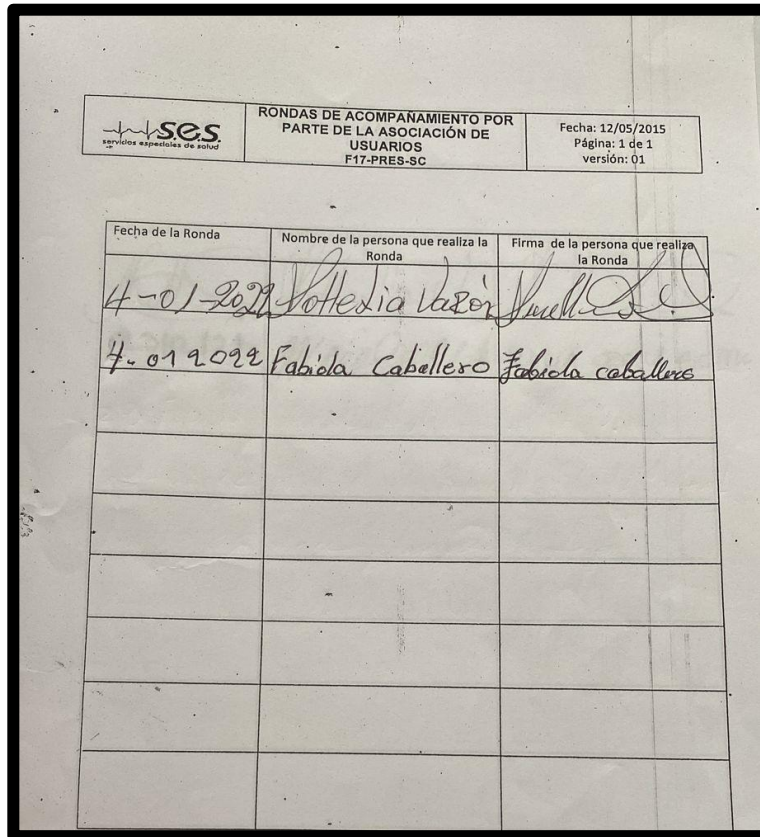 s.e.s.
servicios especiales de salud
RONDAS DE ACOMPAÑAMIENTO POR
PARTE DE LA ASOCIACIÓN DE
USUARIOS
F17-PRES-SC
Fecha: 12/05/2015
Página: 1 de 1
versión: 01
Fecha de la Ronda
Nombre de la persona que realiza la
Ronda
Firma de la persona que realiza
la Ronda
4-01-2022
4-01 2022 Fabiola Caballero Fabiola caballero